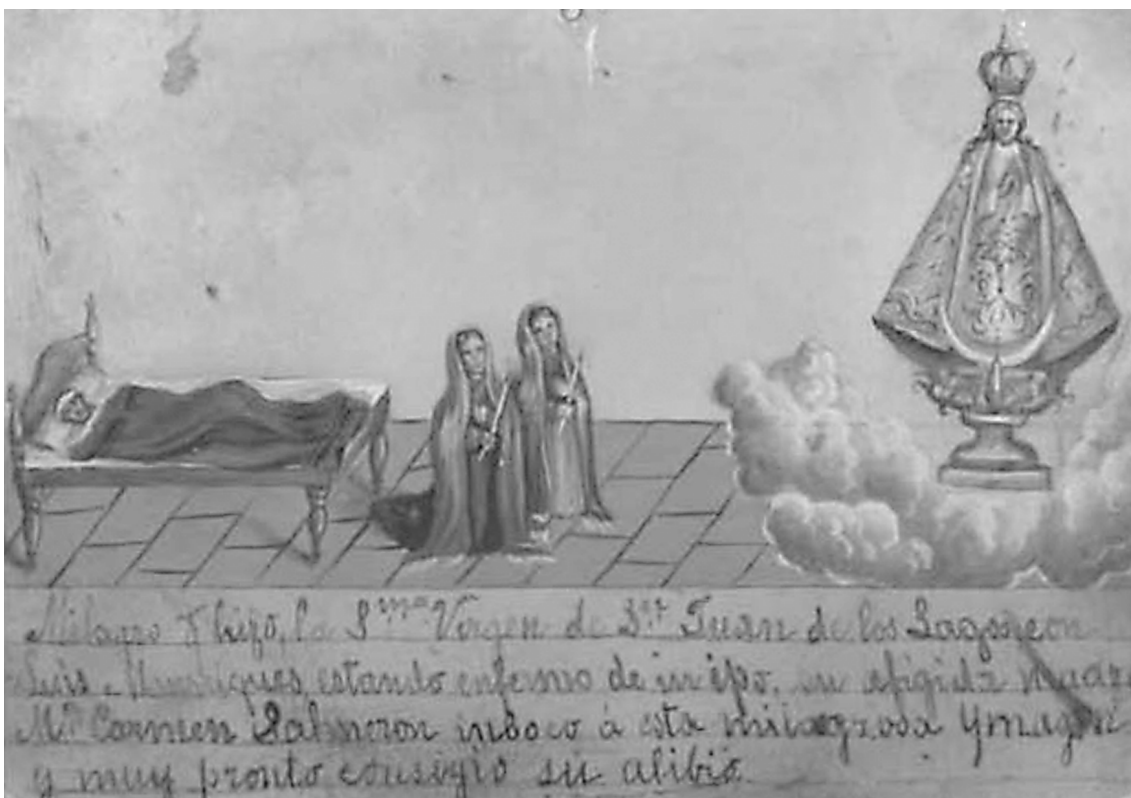 Milagro q̃ hizo, la S.ma Vir.n de S.n Juan de los Lagos, con
Luis Manriques, estando enfermo de un ipo, su afigida madre
M.a Carmen Salmeron inboco á esta milagrosa Ymagen
y muy pronto consigio su alibio.